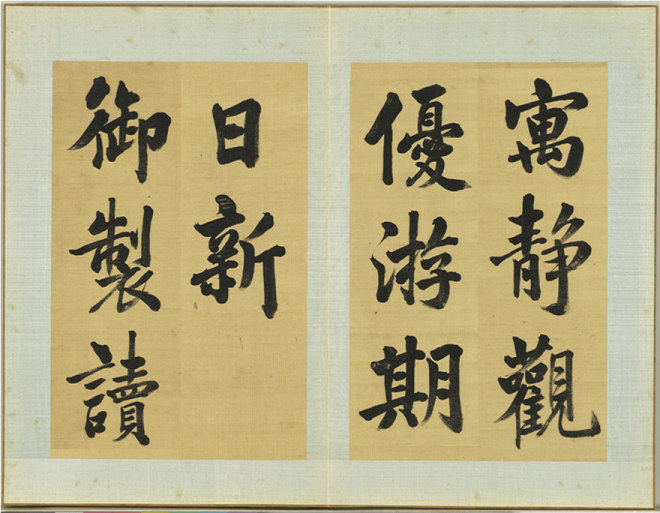 寓静觀
優游期
日新
御製讀